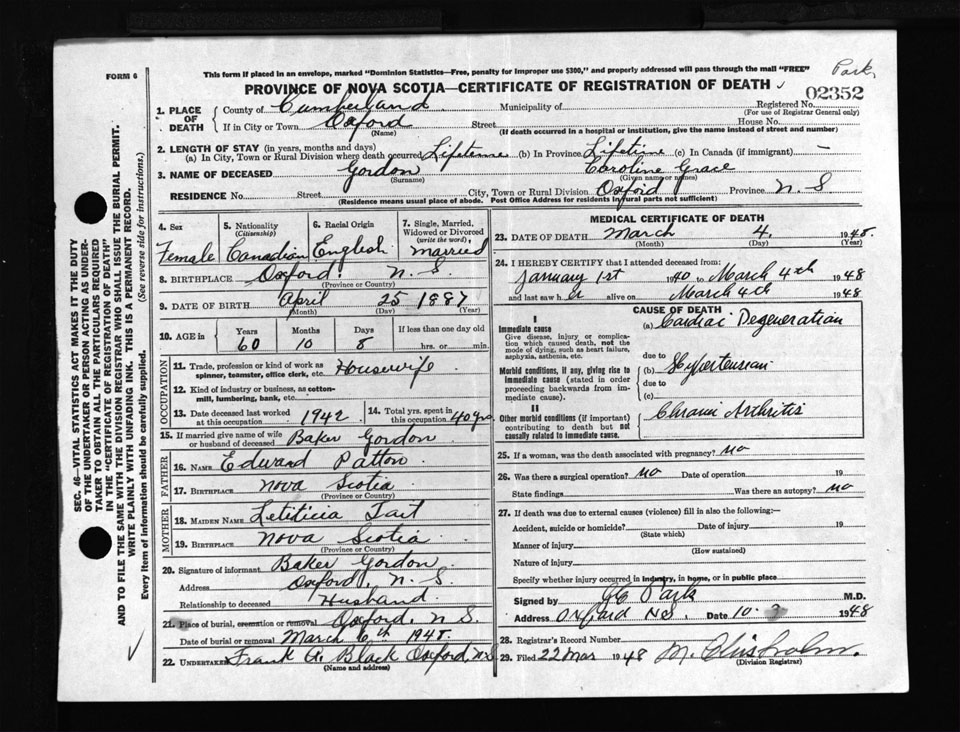 FORM 6
This form if placed in an envelope, marked "Dominion Statistics—Free, penalty for improper use $300," and properly addressed will pass through the mail "FREE"
Park
PROVINCE OF NOVA SCOTIA—CERTIFICATE OF REGISTRATION OF DEATH
02352
1. PLACE OF DEATH
County of Cumberland Municipality of Registered No.
(For use of Registrar General only)
If in City or Town Oxford Street House No.
(Name) (If death occurred in a hospital or institution, give the name instead of street and number)
2. LENGTH OF STAY (in years, months and days)
(a) In City, Town or Rural Division where death occurred Lifetime (b) In Province Lifetime (c) In Canada (if immigrant) —
3. NAME OF DECEASED Gordon Caroline Grace
(Surname) (Given name or names)
RESIDENCE No. Street City, Town or Rural Division Oxford Province N.S
(Residence means usual place of abode. Post Office Address for residents in rural parts not sufficient)
4. Sex 5. Nationality (Citizenship) 6. Racial Origin 7. Single, Married, Widowed or Divorced (write the word)
Female Canadian English Married
8. BIRTHPLACE Oxford. N.S.
(Province or Country)
9. DATE OF BIRTH April 25 1887
(Month) (Day) (Year)
10. AGE in Years Months Days If less than one day old
60 10 8 hrs. or min.
OCCUPATION
11. Trade, profession or kind of work as spinner, teamster, office clerk, etc. Housewife
12. Kind of industry or business, as cotton-mill, lumbering, bank, etc.
13. Date deceased last worked at this occupation 1942 14. Total yrs. spent in this occupation 40 yrs.
15. If married give name of wife or husband of deceased Baker Gordon
FATHER
16. NAME Edward Patton
17. BIRTHPLACE Nova Scotia
(Province or Country)
MOTHER
18. MAIDEN NAME Letiticia Tait
19. BIRTHPLACE Nova Scotia
(Province or Country)
20. Signature of informant Baker Gordon
Address Oxford, N.S.
Relationship to deceased Husband.
21. Place of burial, cremation or removal Oxford. N.S
Date of burial or removal March 6th 1948.
22. UNDERTAKER Frank A. Black Oxford, N.S
(Name and address)
MEDICAL CERTIFICATE OF DEATH
23. DATE OF DEATH March 4. 1948.
(Month) (Day) (Year)
24. I HEREBY CERTIFY that I attended deceased from:
January 1st 1940 to March 4th 1948
and last saw her alive on March 4th 1948
CAUSE OF DEATH
I
Immediate cause
Give disease, injury or complication which caused death, not the mode of dying, such as heart failure, asphyxia, asthenia, etc.
(a) Cardiac Degeneration
due to
Morbid conditions, if any, giving rise to immediate cause (stated in order proceeding backwards from immediate cause).
(b) Hypertension
due to
(c)
II
Other morbid conditions (if important) contributing to death but not causally related to immediate cause.
Chronic Arthritis
25. If a woman, was the death associated with pregnancy? no
26. Was there a surgical operation? no Date of operation 19
State findings Was there an autopsy? no
27. If death was due to external causes (violence) fill in also the following:—
Accident, suicide or homicide? Date of injury 19
(State which)
Manner of injury
(How sustained)
Nature of injury
Specify whether injury occurred in industry, in home, or in public place
Signed by Park M.D.
Address Oxford N.S. Date 10. 3 1948
28. Registrar's Record Number
29. Filed 22 Mar 1948 M. Chisholm.
(Division Registrar)
SEC. 46—VITAL STATISTICS ACT MAKES IT THE DUTY
OF THE UNDERTAKER OR PERSON ACTING AS UNDER-
TAKER TO OBTAIN ALL THE PARTICULARS REQUIRED
IN THE "CERTIFICATE OF REGISTRATION OF DEATH"
AND TO FILE THE SAME WITH THE DIVISION REGISTRAR WHO SHALL ISSUE THE BURIAL PERMIT.
WRITE PLAINLY WITH UNFADING INK. THIS IS A PERMANENT RECORD.
Every item of information should be carefully supplied. (See reverse side for instructions.)